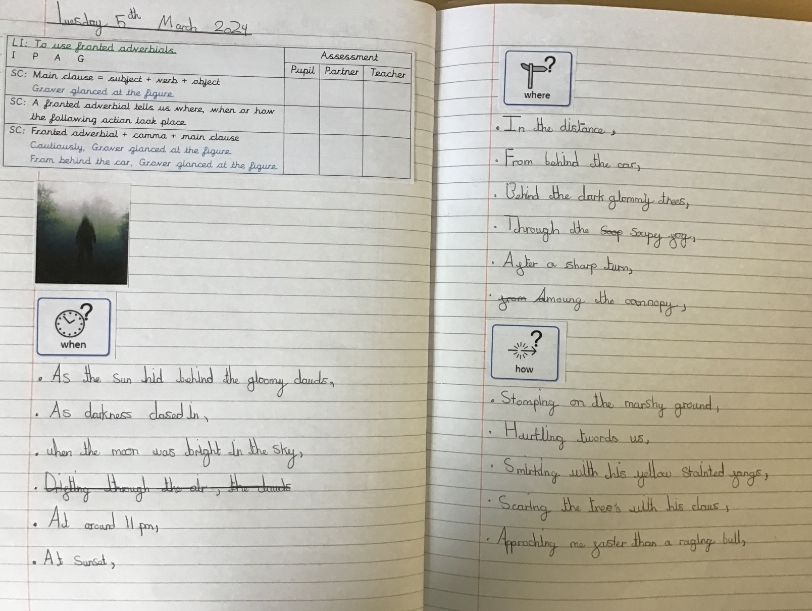 Tuesday 5th March 2024
LI: To use fronted adverbials.
I P A G
Assessment
Pupil Partner Teacher
SC: Main clause = subject + verb + object
Grover glanced at the figure
SC: A fronted adverbial tells us where, when or how
the following action took place
SC: Fronted adverbial + comma + main clause
Cautiously, Grover glanced at the figure
From behind the car, Grover glanced at the figure
when
. As the sun hid behind the gloomy clouds,
. As darkness closed in,
. when the moon was bright in the sky,
. Drifting through the air, the clouds
. At around 11 pm,
. At sunset,
where
. In the distance,
. From behind the car,
. Behind the dark glommy trees,
. Through the Soop Soupy fog,
. After a sharp turn,
. from Amoung the cannopy,
how
. Stomping on the marshy ground,
. Hurtling twords us,
. Smirking with his yellow stainted fangs,
. Scaring the tree's with his claws,
. Approching me faster than a raging bull,